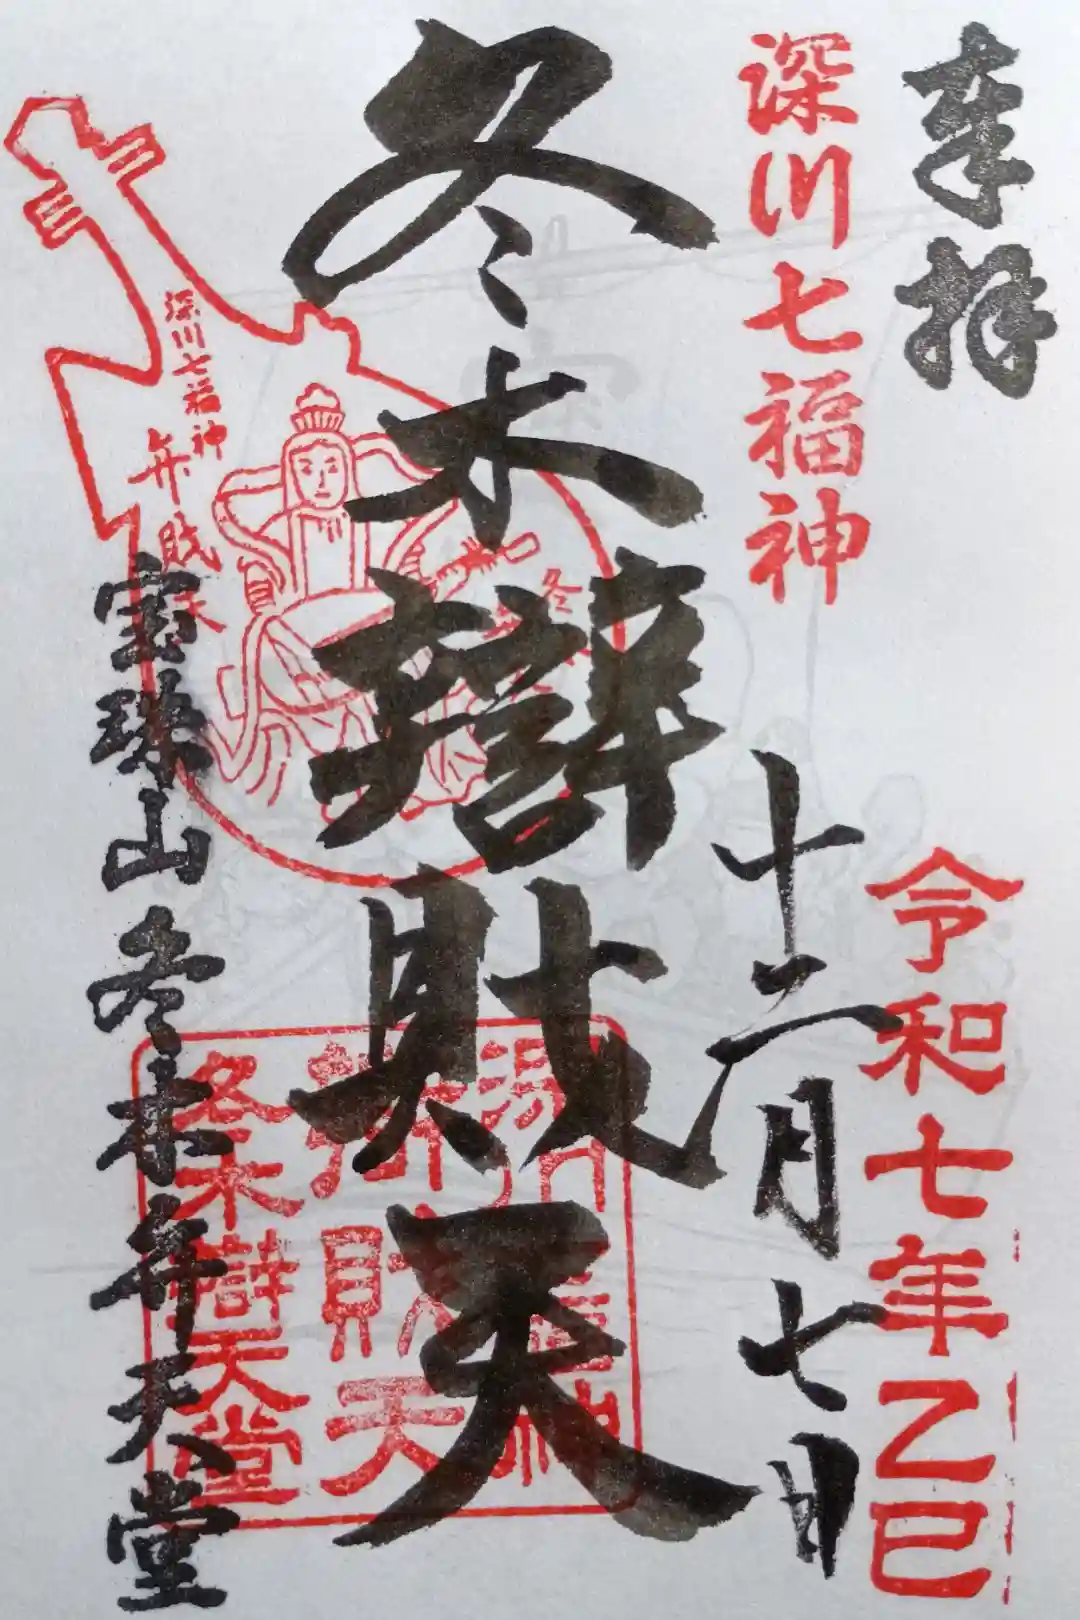 奉拝
深川七福神
令和七年乙巳
十二月七日
冬木辯財天
深川七福神
弁財
冬木
深川七福神
辯財天
冬木辯天堂
宝珠山冬木弁天堂